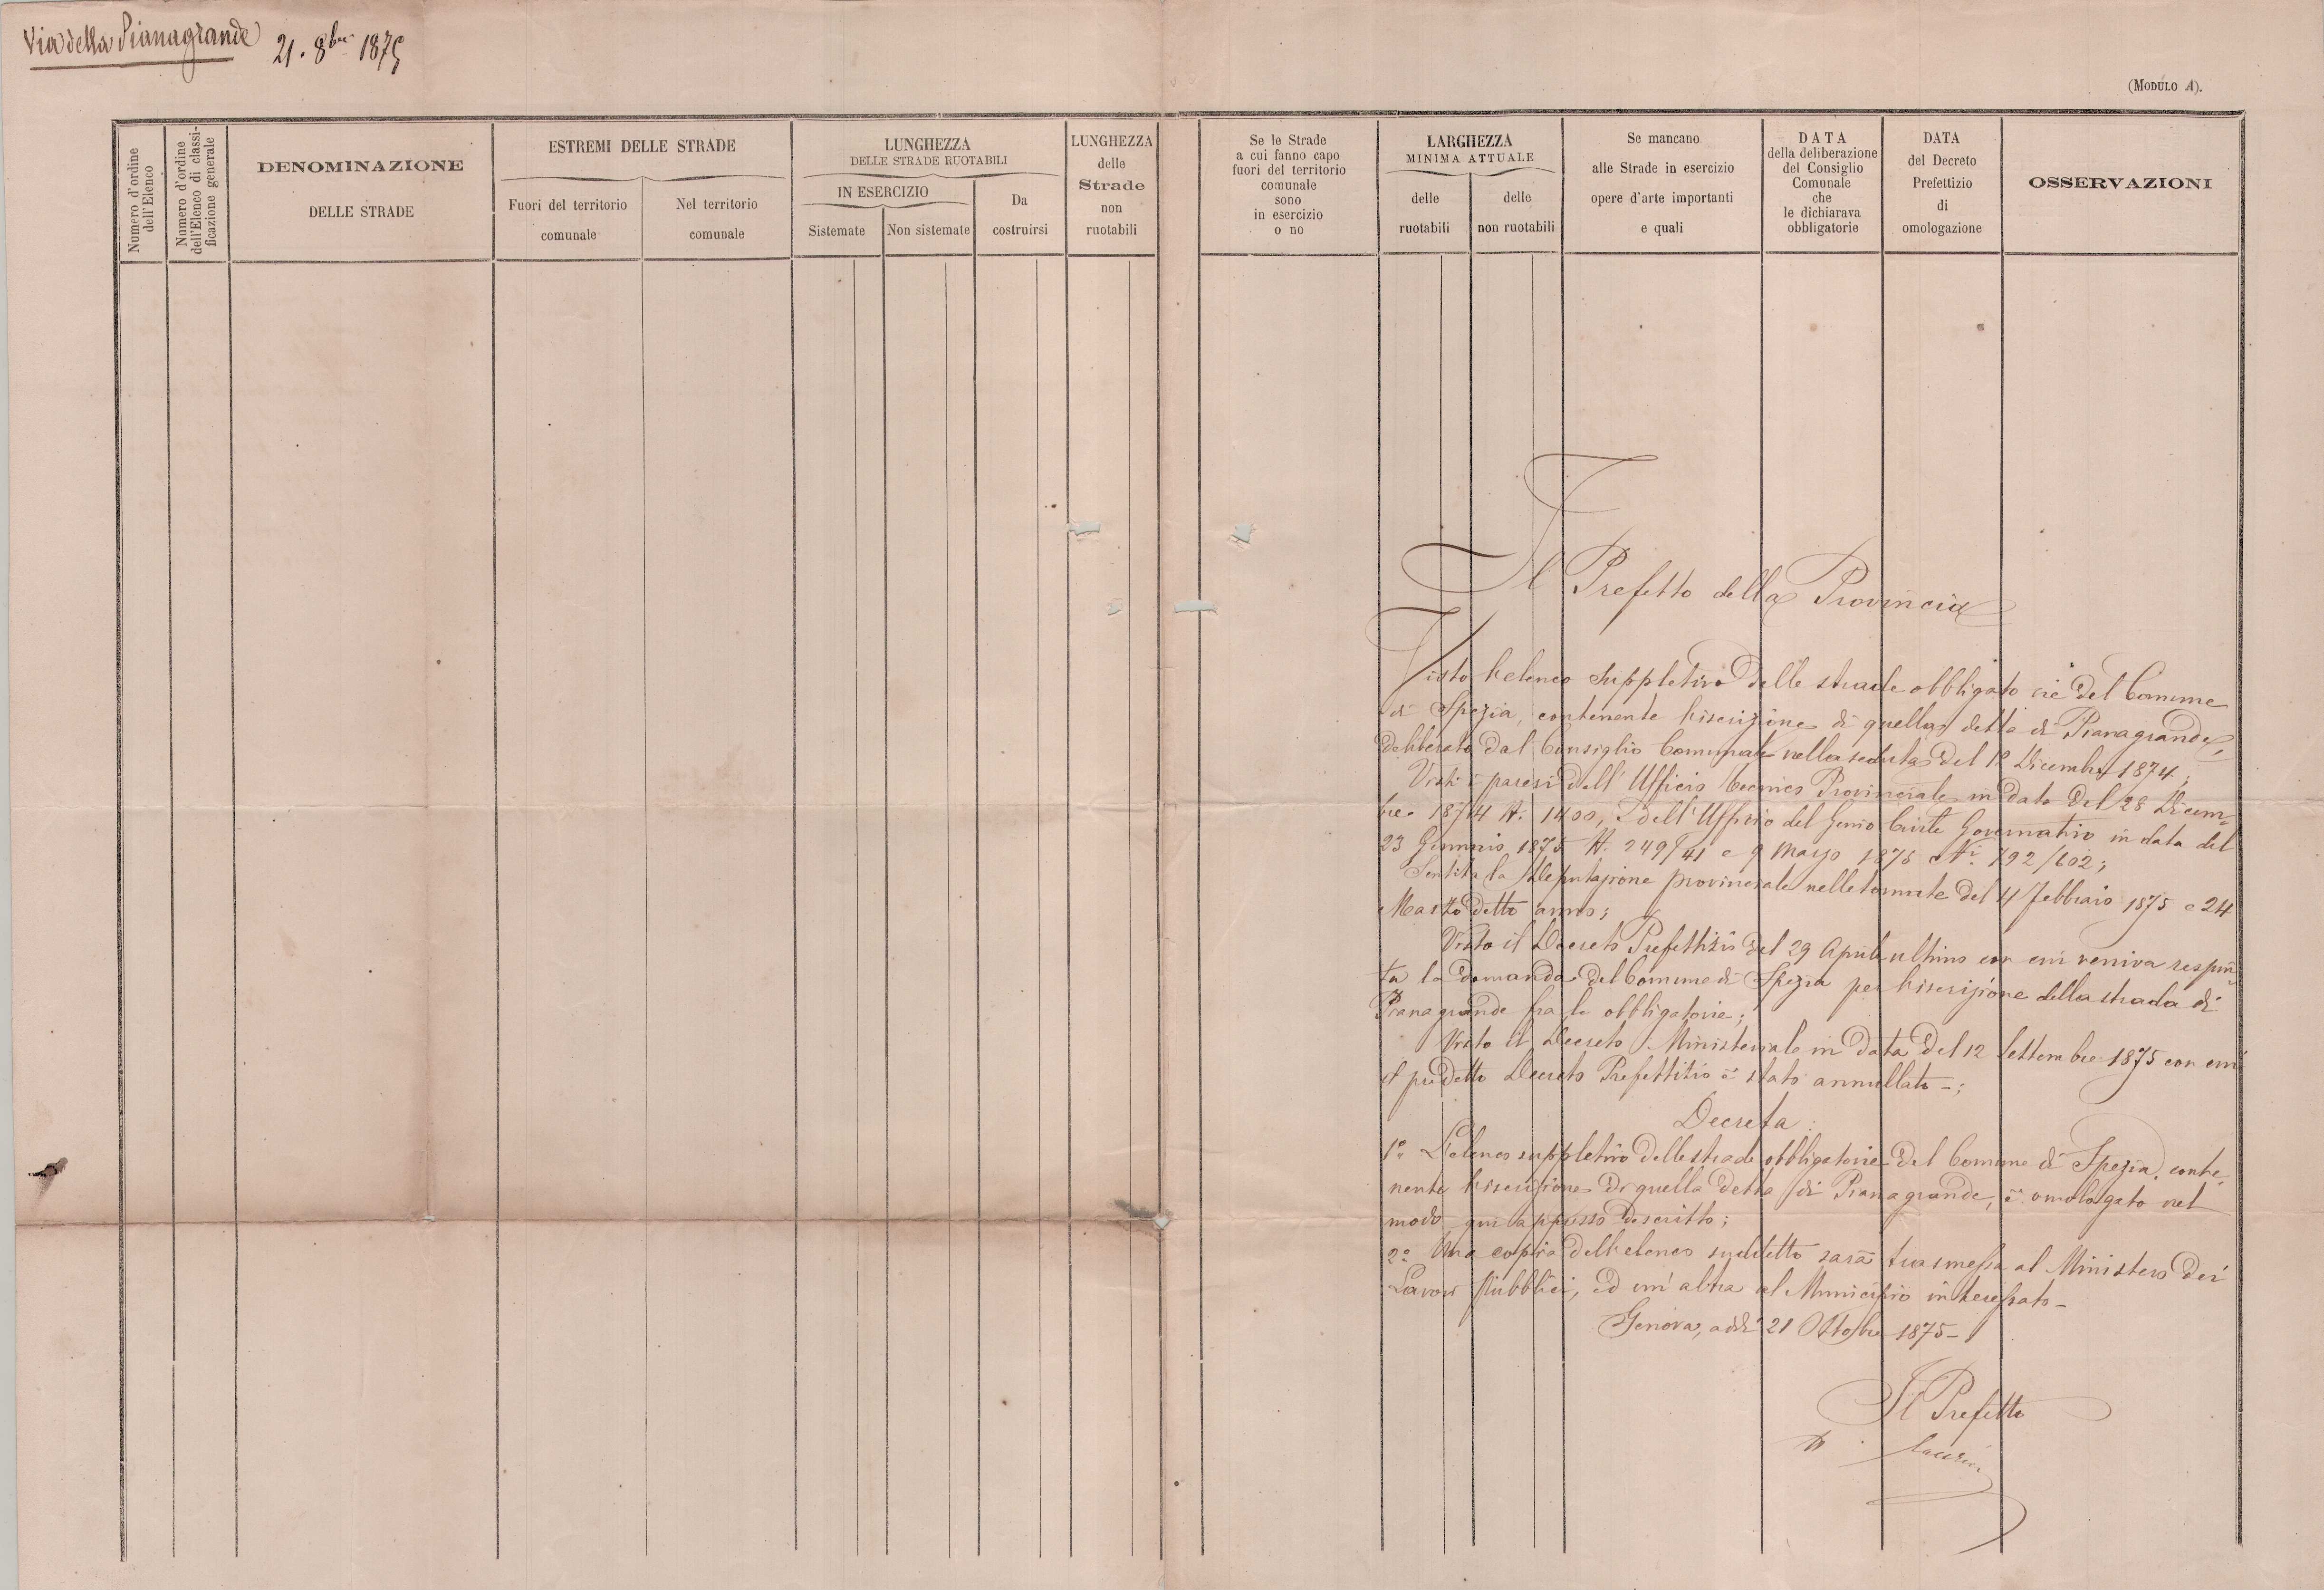 Via della Pianagrande 21. 8bre 1875
(Modulo A).
Numero d'ordine
dell'Elenco
Numero d'ordine
dell'Elenco di classi-
ficazione generale
DENOMINAZIONE
DELLE STRADE
ESTREMI DELLE STRADE
Fuori del territorio
comunale
Nel territorio
comunale
LUNGHEZZA
DELLE STRADE RUOTABILI
IN ESERCIZIO
Sistemate
Non sistemate
Da
costruirsi
LUNGHEZZA
delle
Strade
non
ruotabili
Se le Strade
a cui fanno capo
fuori del territorio
comunale
sono
in esercizio
o no
LARGHEZZA
MINIMA ATTUALE
delle
ruotabili
delle
non ruotabili
Se mancano
alle Strade in esercizio
opere d'arte importanti
e quali
DATA
della deliberazione
del Consiglio
Comunale
che
le dichiarava
obbligatorie
DATA
del Decreto
Prefettizio
di
omologazione
OSSERVAZIONI
Il Prefetto della Provincia
Visto l'elenco suppletivo delle strade obbligatorie del Comune
di Spezia, contenente l'iscrizione di quella detta di Pianagrande,
deliberato dal Consiglio Comunale nella seduta del 1º Dicembre 1874;
Visti i pareri dell'Ufficio tecnico Provinciale in data del 28 Dicem-
bre 1874 N. 1400, e dell'Ufficio del Genio Civile Governativo in data del
23 Gennaio 1875 N. 249/41 e 9 Marzo 1875 Ni. 792/602;
Sentita la Deputazione provinciale nelle tornate del 4 febbraio 1875 e 24
Marzo detto anno;
Visto il Decreto Prefettizio del 29 Aprile ultimo con cui veniva respin-
ta la domanda del Comune di Spezia per l'iscrizione della strada di
Pianagrande fra le obbligatorie;
Visto il Decreto Ministeriale in data del 12 Settembre 1875 con cui
il predetto Decreto Prefettizio è stato annullato -;
Decreta:
1º L'elenco suppletivo delle strade obbligatorie del Comune di Spezia, conte-
nente l'iscrizione di quella detta di Pianagrande, è omologato nel
modo qui appresso descritto;
2º Una copia dell'elenco suddetto sarà trasmessa al Ministero dei
Lavori Pubblici, ed un'altra al Municipio interessato -
Genova, addì 21 Ottobre 1875 -
Il Prefetto